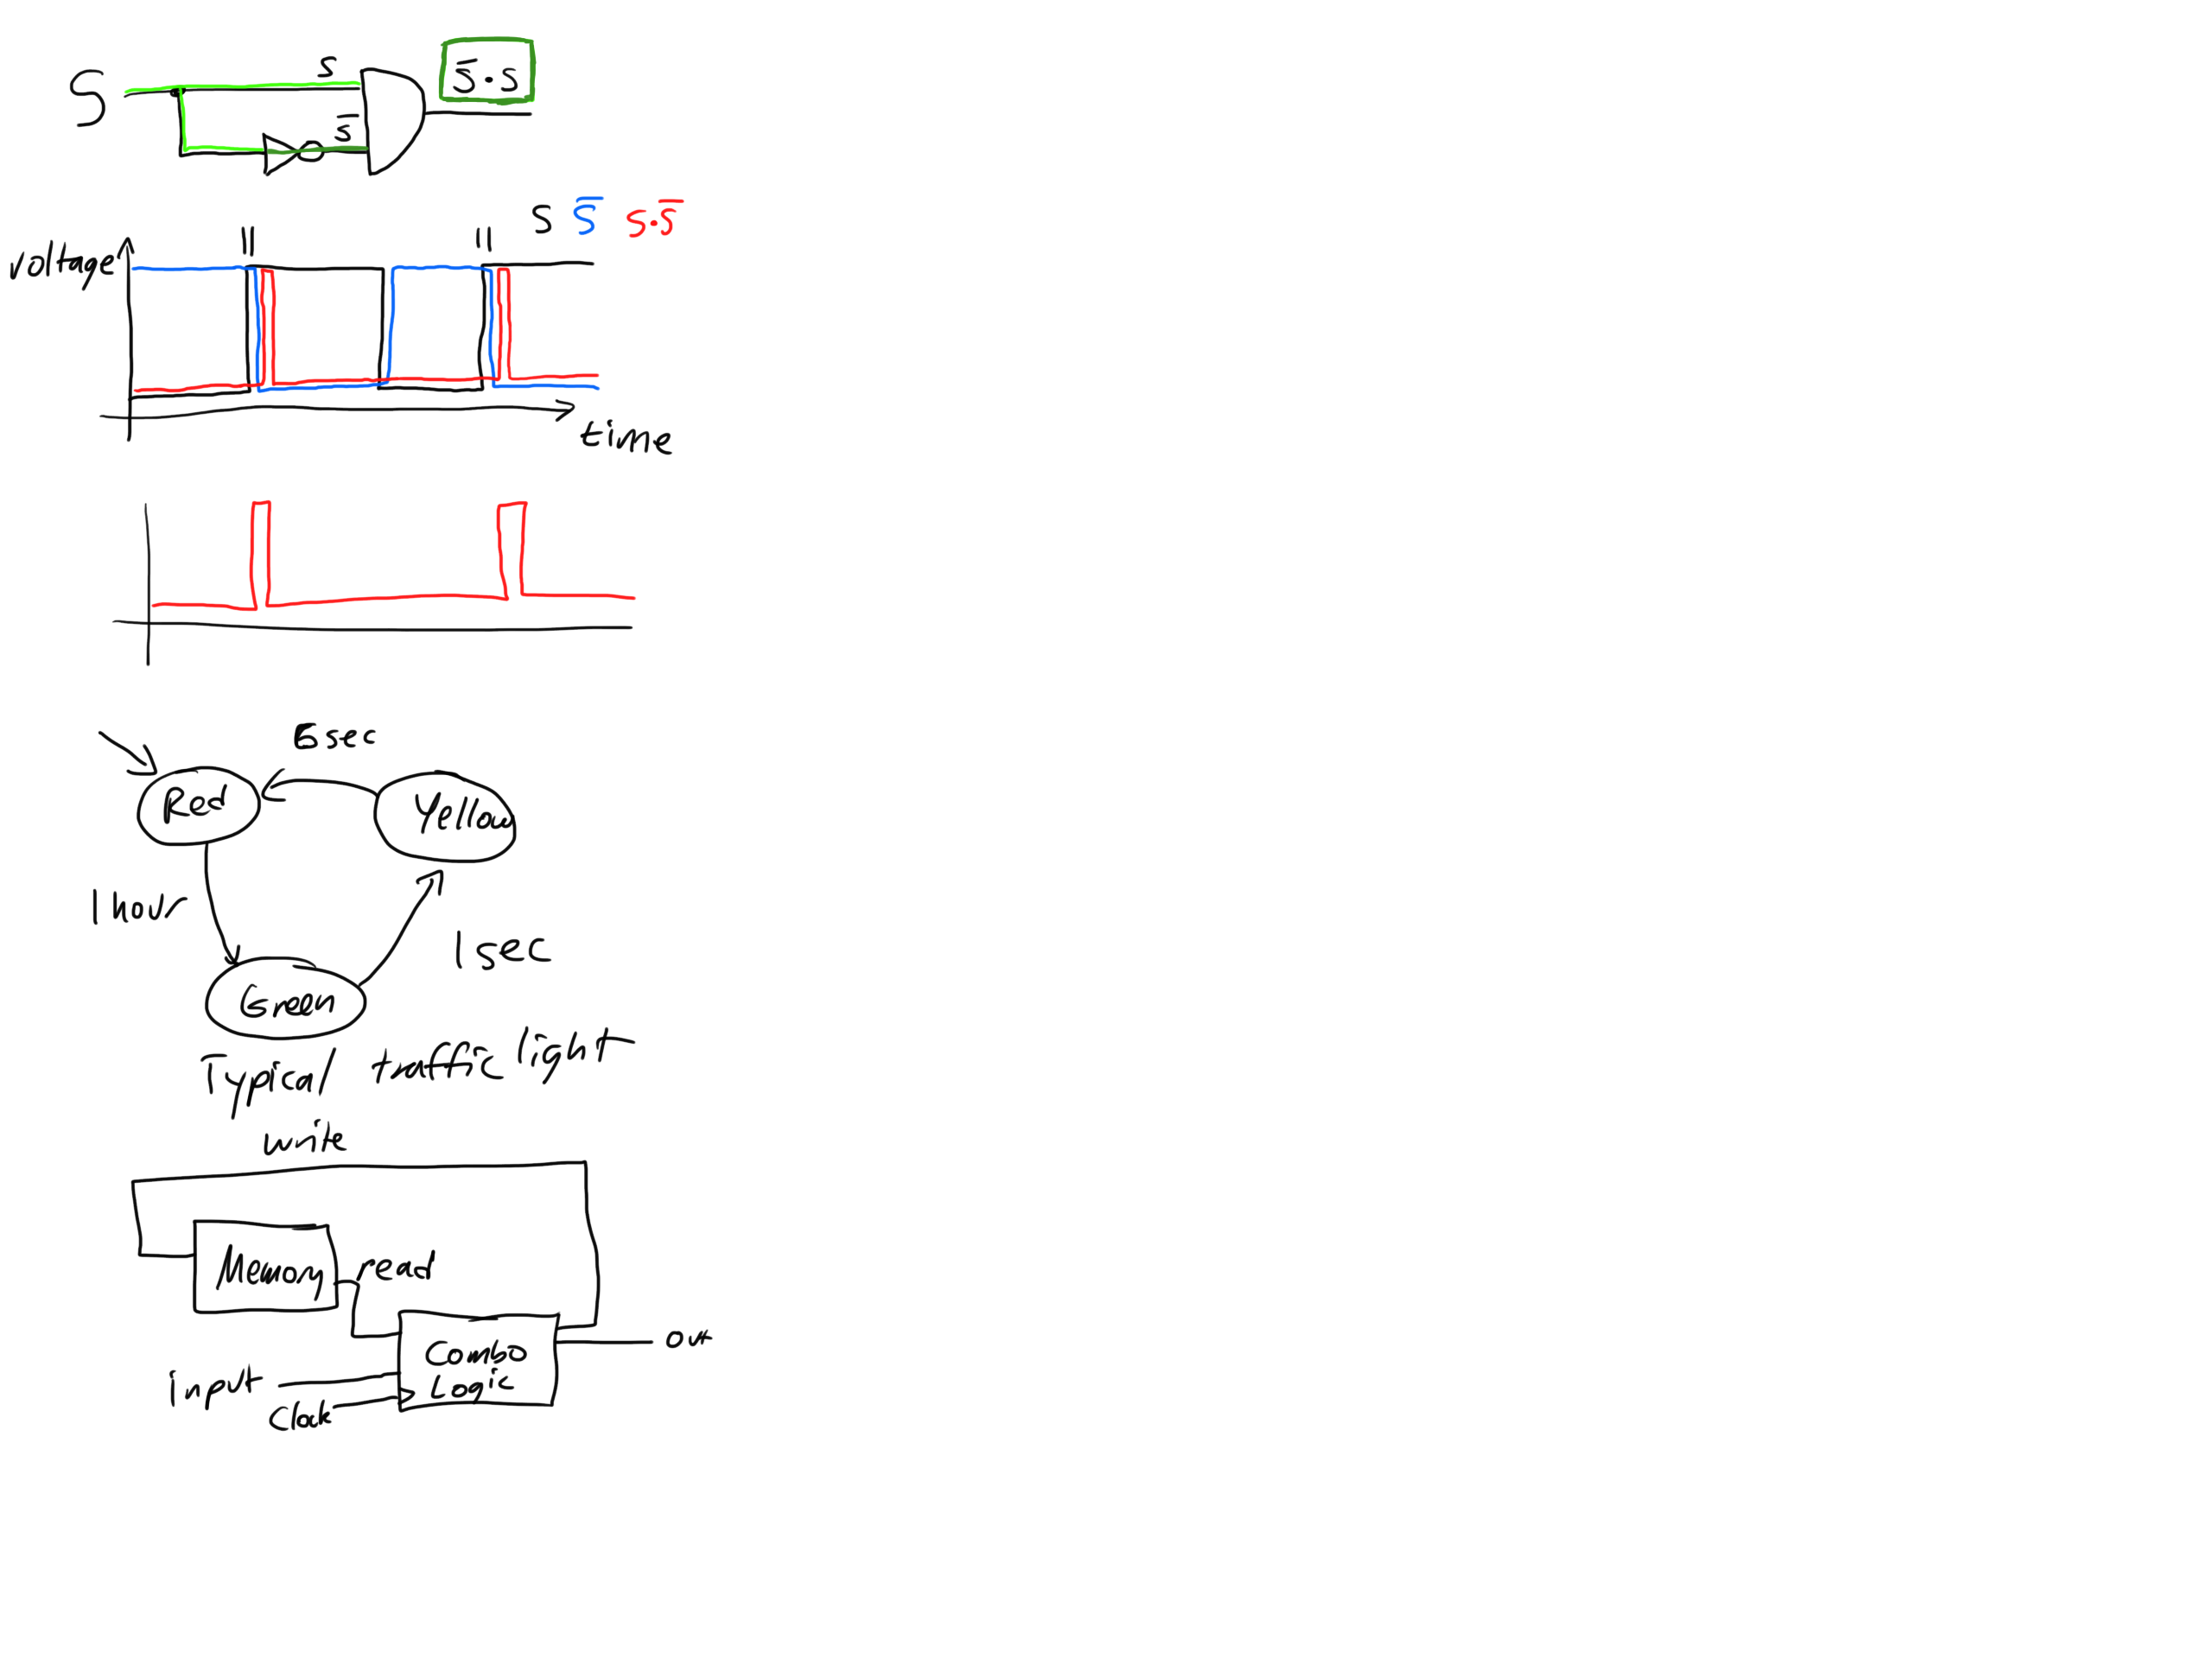 S
S
S̅
S̅·S
S S̅ S·S̅
voltage
time
5 sec
Red
Yellow
1 hour
1 sec
Green
Typical traffic light
write
Memory
read
Combo
Logic
out
input
Clock